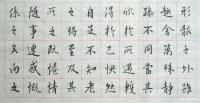 形骸之外雖
趣舍萬殊靜
躁不同當其
欣於所遇暫
得於己快然
自足不知老
之將至及其
所之既惓情
隨事遷感慨
係之矣向之